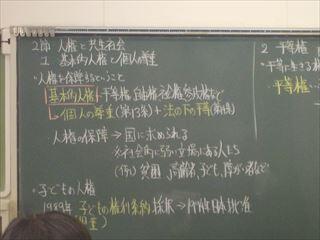 2節 人権と共生社会
1 基本的人権と個人の尊重
・人権を保障するということ
基本的人権 平等権 自由権 社会権 参政権など
個人の尊重(第13条)+法の下の平等(第14条)
人権の保障→国に求められる
社会的に弱い立場にある人たち
(例) 貧困、高齢者、子ども、障がい者など
・子どもの人権
1989年 子どもの権利条約 採択→1994年日本批准
2 平等権
・平等に生きる権
・平等権